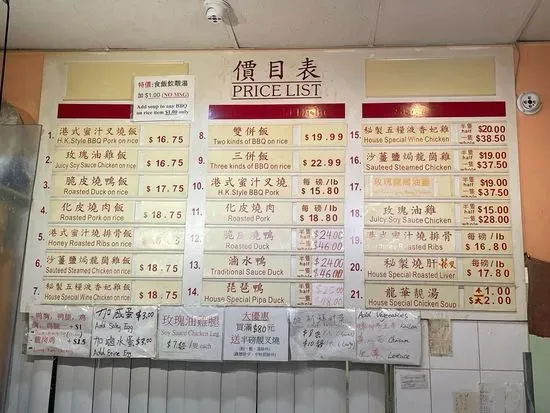 價目表
PRICE LIST
特價:食飯飲靚湯
加 $1.00 (NO MSG)
Add soup to any BBQ
on rice item $1.00 only
1. 港式蜜汁叉燒飯
H.K.Style BBQ Pork on rice $ 16.75
2. 玫瑰油雞飯
Juicy Soy Sauce Chicken $ 16.75
3. 脆皮燒鴨飯
Roasted Duck on rice $ 17.75
4. 化皮燒肉飯
Roasted Pork on rice $ 18.75
5. 港式蜜汁燒排骨飯
Honey Roasted Ribs on rice
6. 沙薑鹽焗龍崗雞飯
Sauteed Steamed Chicken on rice $ 18.75
7. 秘製五糧液香妃雞飯
House Special Wine Chicken on rice $ 18.75
8. 雙併飯
Two kinds of BBQ on rice $ 19.99
9. 三併飯
Three kinds of BBQ on rice $ 22.99
10. 港式蜜汁叉燒 每磅/lb
H.K.Style BBQ Pork $ 15.80
11. 化皮燒肉 每磅/lb
Roasted Pork $ 18.80
12. 脆皮燒鴨 半隻 $24.00
Roasted Duck $46.00
13. 滷水鴨 半隻 $24.00
Traditional Sauce Duck $46.00
14. 琵琶鴨
House Special Pipa Duck
15. 秘製五糧液香妃雞 半隻 half $20.00
House Special Wine Chicken 一隻 whole $38.50
16. 沙薑鹽焗龍崗雞 半隻 half $19.00
Sauteed Steamed Chicken 一隻 whole $37.50
17. 玫瑰龍崗雞 半隻 half $19.00
一隻 whole $37.50
18. 玫瑰油雞 半隻 half $15.00
Juicy Soy Sauce Chicken 一隻 whole $28.00
19. 港式蜜汁燒排骨 每磅/lb
Honey Roasted Ribs $ 16.80
20. 秘製燒肝 每磅/lb
House Special Roasted Liver $ 17.80
21. 龍華靚湯 小 1.00
House Special Chicken Soup 大 2.00
加咸蛋 $3.00
Add Salty Egg
加滷水蛋 $3.00
Add Brine Egg
玫瑰油雞腿
Soy Sauce Chicken Leg
each
大優惠
買滿$80元
送半磅靚叉燒
Add Vegetables
Lettuce